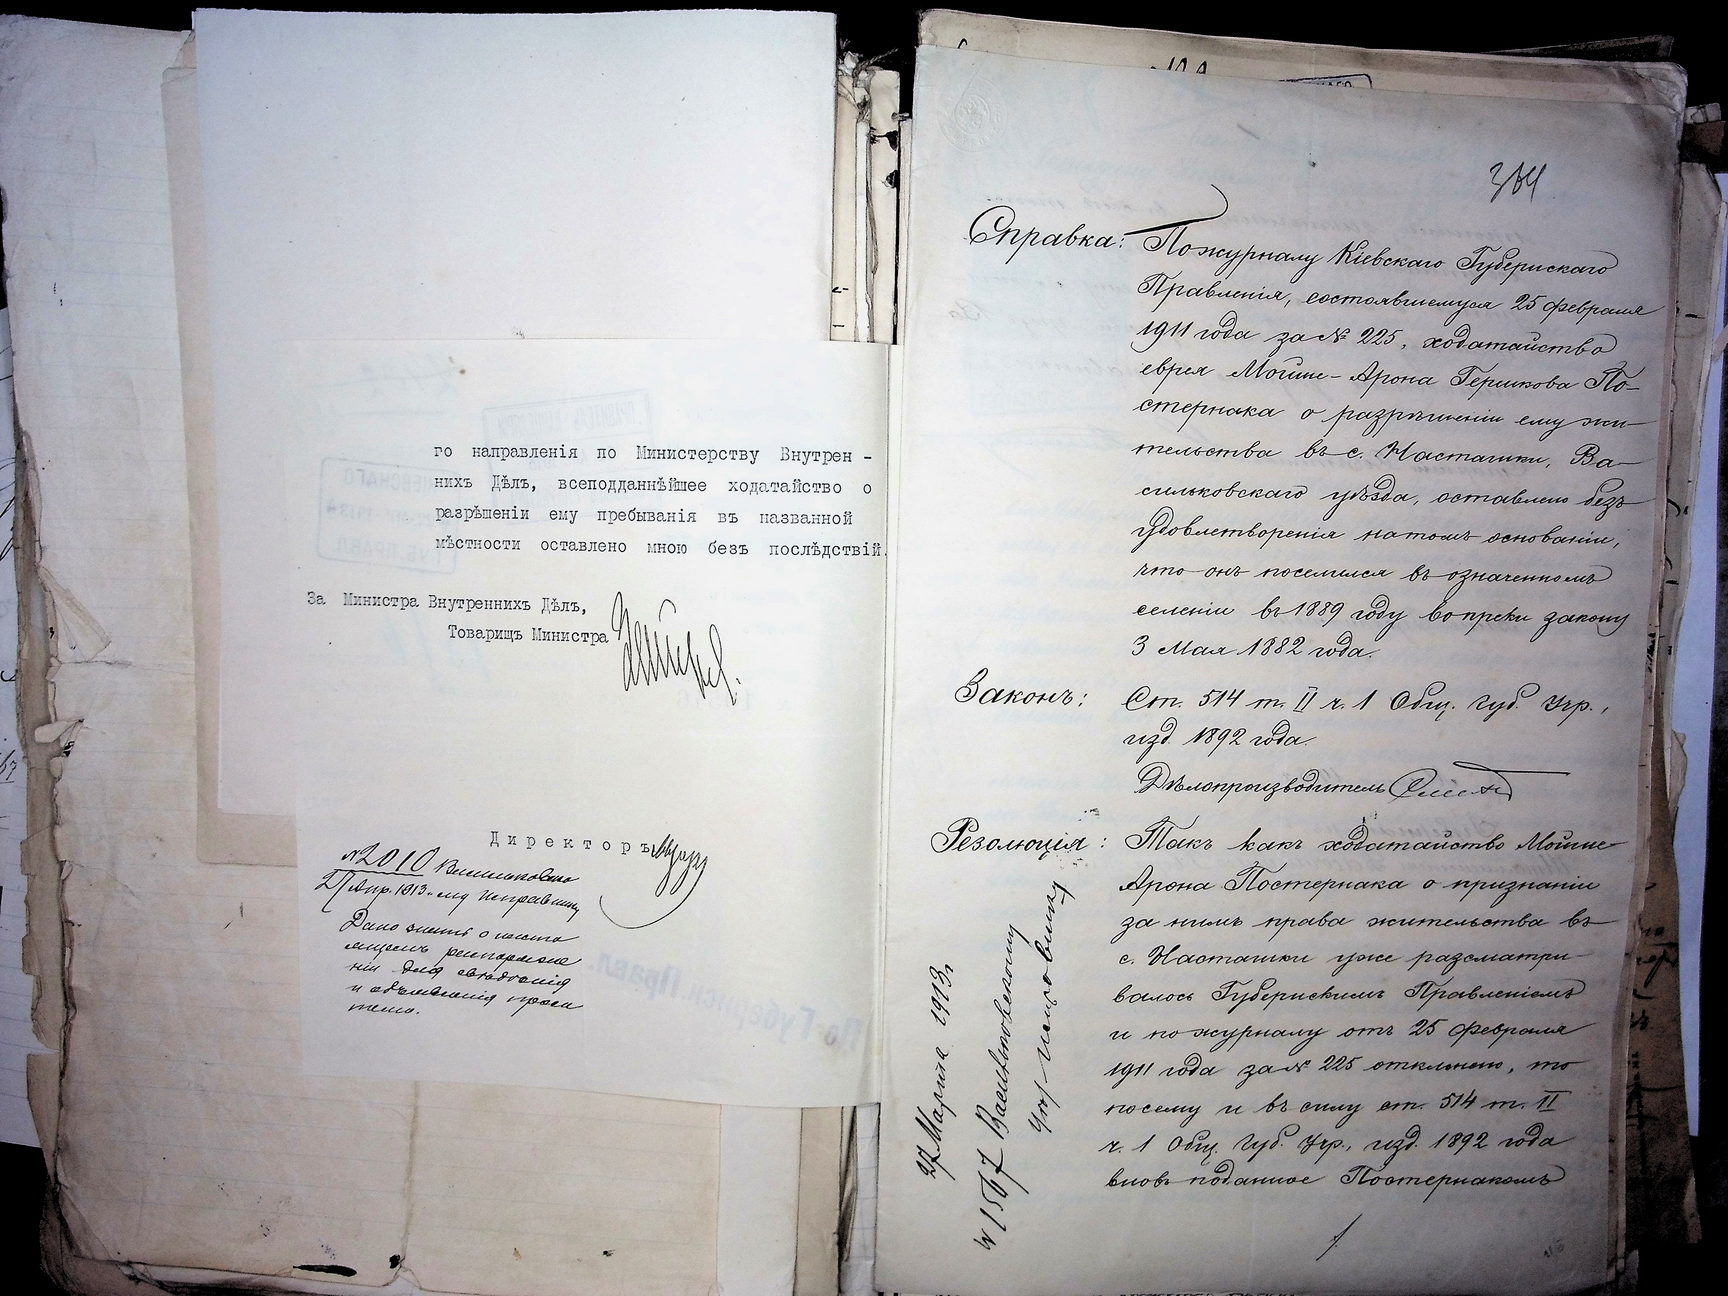 го направленія по Министерству Внутрен-
нихъ Дѣлъ, всеподданнѣйшее ходатайство о
разрѣшеніи ему пребыванія въ названной
мѣстности оставлено мною безъ послѣдствій.
За Министра Внутреннихъ Дѣлъ,
Товарищъ Министра
Директоръ
№ 2010
Апр. 1913 Исправнику
Дано знать о насто
ящемъ распоряже
ніи для свѣдѣнія
и объявленія проси
телю.
364
Справка: По журналу Кіевскаго Губернскаго
Правленія, состоявшемуся 25 февраля
1911 года за № 225, ходатайство
еврея Мойше-Арона Гершкова По-
стернака о разрѣшеніи ему жи-
тельства въ с. Насташки, Ва-
сильковскаго уѣзда, оставлено безъ
удовлетворенія на томъ основаніи,
что онъ поселился въ означенномъ
селеніи въ 1889 году вопреки закону
3 Мая 1882 года.
Законъ: Ст. 514 т. II ч. 1 Общ. Губ. Учр.,
изд. 1892 года.
Дѣлопроизводитель
Резолюція: Такъ какъ ходатайство Мойше
Арона Постернака о признаніи
за нимъ права жительства въ
с. Насташки уже разсматри-
валось Губернскимъ Правленіемъ
и по журналу отъ 25 февраля
1911 года за № 225 отклонено, то
посему и въ силу ст. 514 т. II
ч. 1 Общ. Губ. Учр., изд. 1892 года
вновь поданное Постернакомъ
27 Марта 1913 г.
№ 1567 Васильковскому